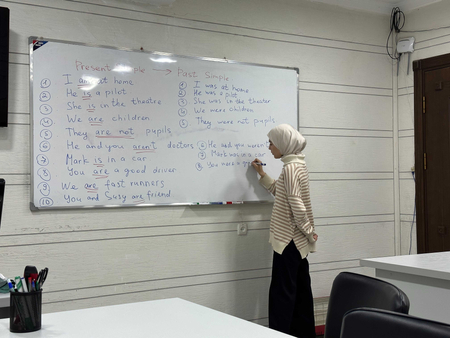 Present → Past Simple
1 I am at home
2 He is a pilot
3 She is in the theatre
4 We are children
5 They are not pupils
6 He and you aren't doctors
7 Mark is in a car
8 You are a good driver
9 We are fast runners
10 You and Susy are friend.
1 I was at home
2 He was a pilot
3 She was in the theater
4 We were children
5 They were not pupils
6 He and you weren't
7 Mark was in a car
8 You were a